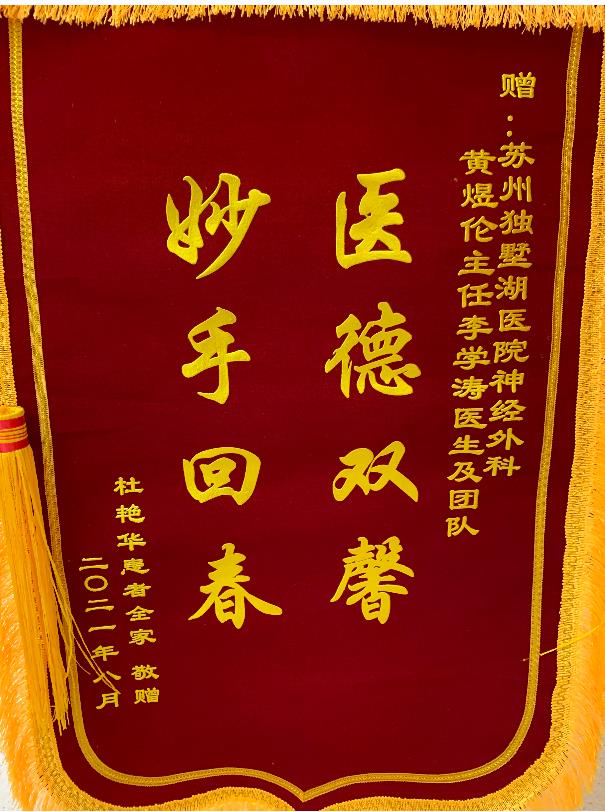 赠：苏州独墅湖医院神经外科
黄煜伦主任李学涛医生及团队
医德双馨
妙手回春
杜艳华患者全家 敬赠
二〇二一年八月